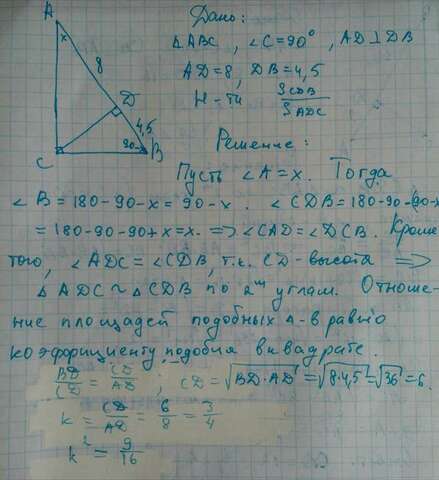 Дано:
A
△ABC, ∠C=90°, AD⊥DB
x
8
AD=8, DB=4,5
D
Н-ти S CDB / S ADC
4,5
Решение:
C
90-x
B
Пусть ∠A=x. Тогда
∠B=180-90-x=90-x. ∠CDB=180-90-(90-x
=180-90-90+x=x. ⇒ ∠CAD=∠DCB. Кроме
того, ∠ADC=∠CDB, т.к. CD-высота ⇒
△ADC~△CDB по 2м углам. Отноше-
ние площадей подобных △-в равно
коэффициенту подобия в квадрате.
BD/CD = CD/AD, CD=√BD·AD=√8·4,5=√36=6.
k = CD/AD = 6/8 = 3/4
k² = 9/16